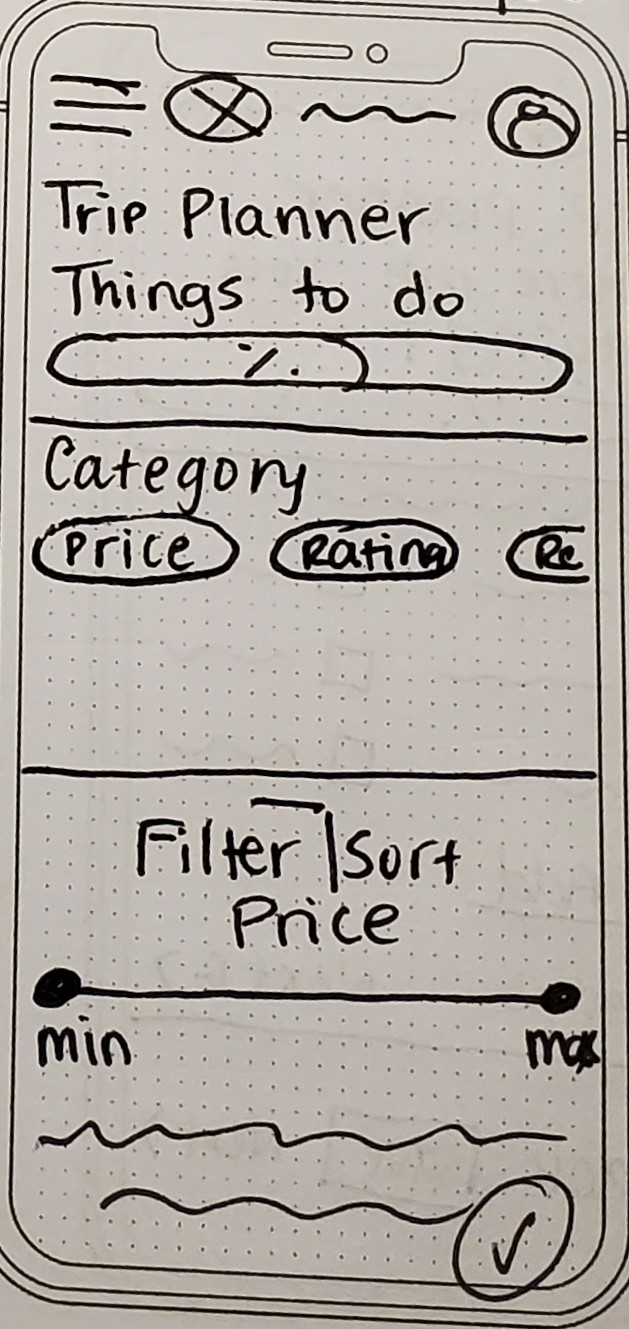 Trip Planner
Things to do
%
Category
Price Rating Re
Filter | Sort
Price
min max